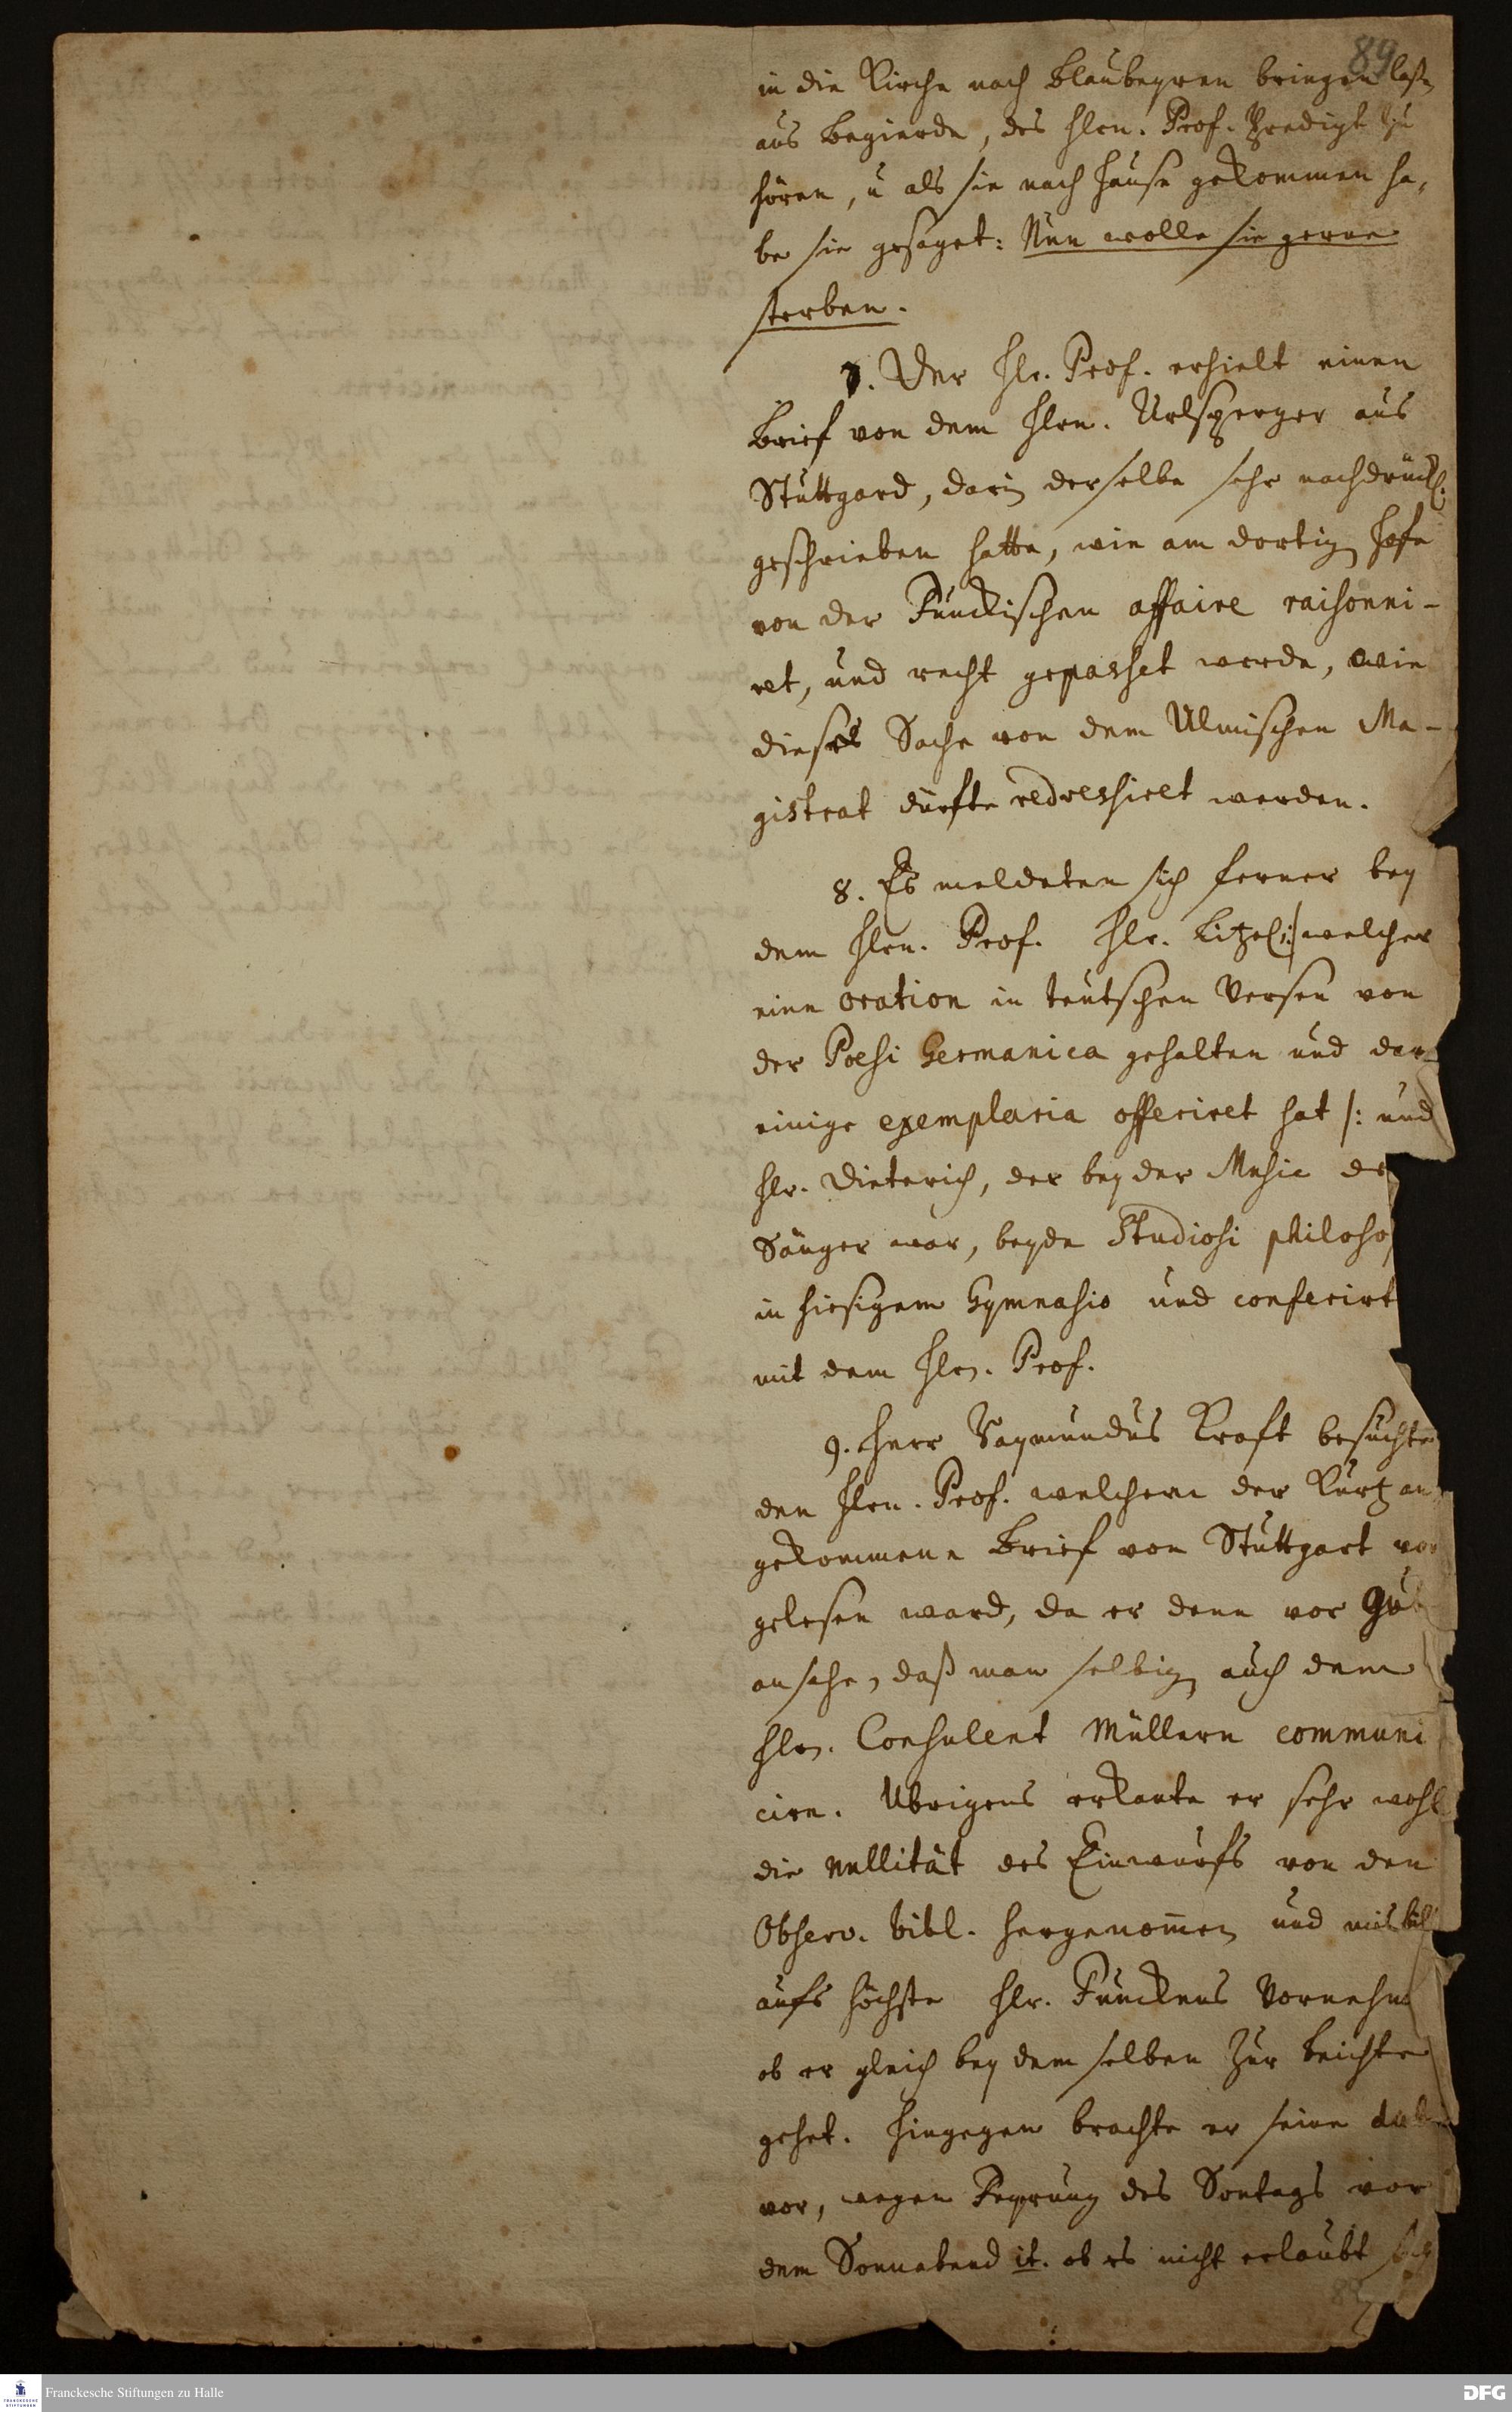 89
in die Kirche nach Blaubeyren bringen laßen
aus Begierde, des Hrn. Prof. Predigt zu
hören, u als sie nach Hause gekommen ha,
be sie gesaget: Nun wolle sie gerne
sterben.
7. Der Hr. Prof. erhielt einen
Brief von dem Hrn. Urlsperger aus
Stuttgard, darin derselbe sehr nachdrückl.
geschrieben hatte, wie am dortigen Hofe
von der Funckischen affaire raisonni-
ret, und recht gepasset werde, wie
dieses Sache von dem Ulmischen Ma-
gistrat dürfte redressiret werden.
8. Es meldeten sich ferner bey
dem Hrn. Prof. Hr. Litzel /: welcher
eine oration in teutschen Versen von
der Poesi Germanica gehalten und dar
einige exemplaria offeriret hat /: und
Hr. Dieterich, der bey der Music de
Sänger war, beyde Studiosi philoso
in hiesigem Gymnasio und conferirt
mit dem Hrn. Prof.
9. Herr Raymundus Kraft besuchte
den Hrn. Prof. welchem der Kurtz an
gekommene Brief von Stuttgart vor
gelesen ward, da er denn vor gut
ansahe, daß man selbigen auch dem
Hrn. Consulent Müllern communi
cire. Ubrigens erkante er sehr wohl
die nullität des Einwurfs von den
Observ. bibl. hergenom̅en und misbil
aufs höchste Hr. Funckens Vornehm
ob er gleich bey demselben zur Beichte
gehet. Hingegen brachte er seine dub
vor, wegen Feyrung des Sontags vor
dem Sonnabend it. ob es nicht erlaubt sey
Franckesche Stiftungen zu Halle
DFG